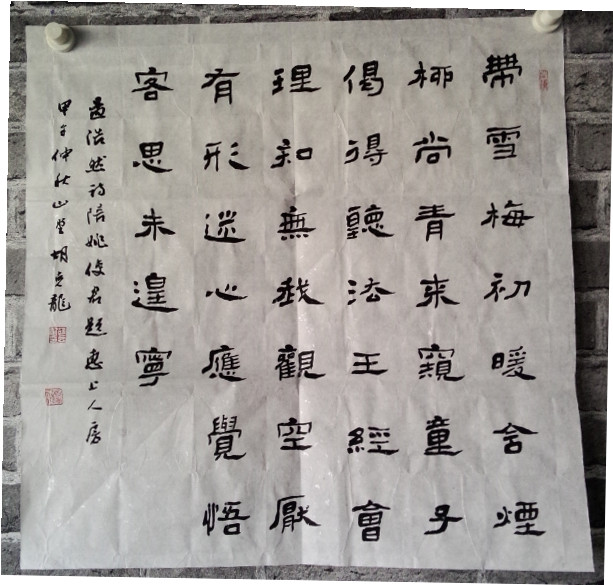 帶雪梅初暖含煙
柳尚青来窺童子
偈得聽法王經會
理知無我觀空厭
有形迷心應覺悟
客思未遑寧
孟浩然诗陪姚使君題惠上人房
甲午仲秋山胡龍